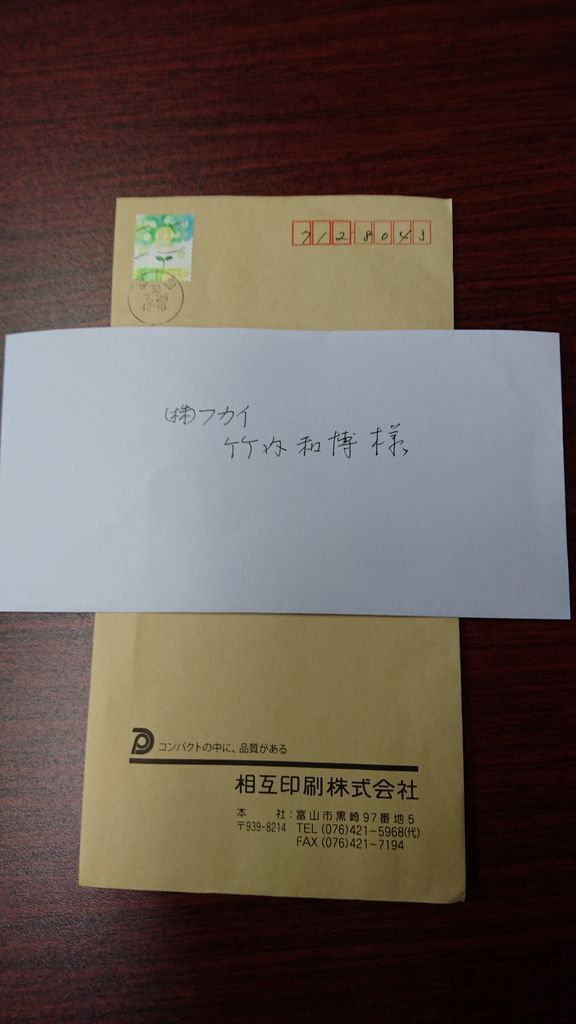 7128043
30
7.28
12-18
(株)フカイ
竹内和博様
コンパクトの中に、品質がある
相互印刷株式会社
本 社：富山市黒崎97番地5
〒939-8214 TEL (076)421-5968(代)
FAX (076)421-7194